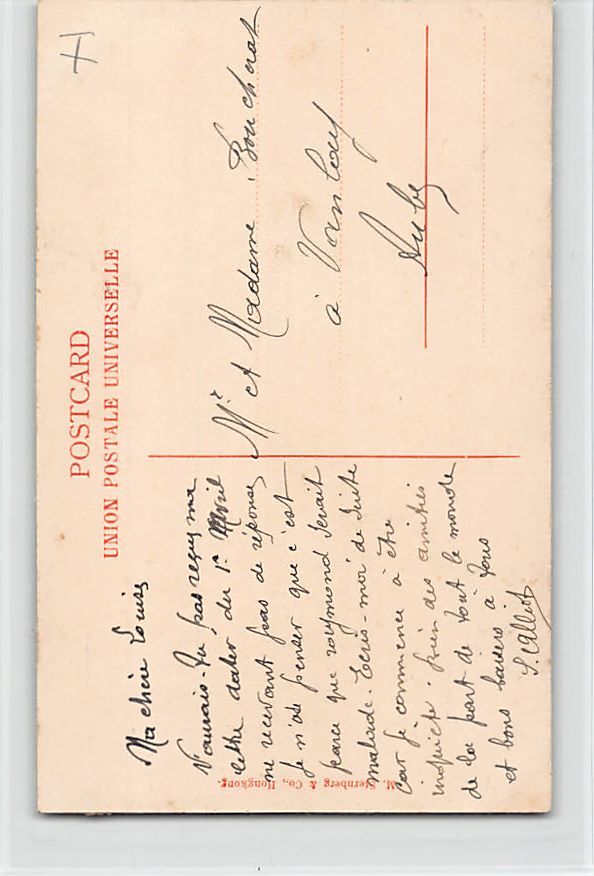 POSTCARD
UNION POSTALE UNIVERSELLE
Ma chère Louise
N'aurais-tu pas reçu ma
lettre dater du 1er Avril
ne recevant pas de réponse
je n'ose penser que c'est
parce que raymond serait
malade. Ecris-moi de suite
car je commence à être
inquiète. bien des amitiés
de la part de tout le monde
et bons baisers à tous
Mr et Madame Boucherat
à
Aube
M. Sternberg & Co., Hongkong.